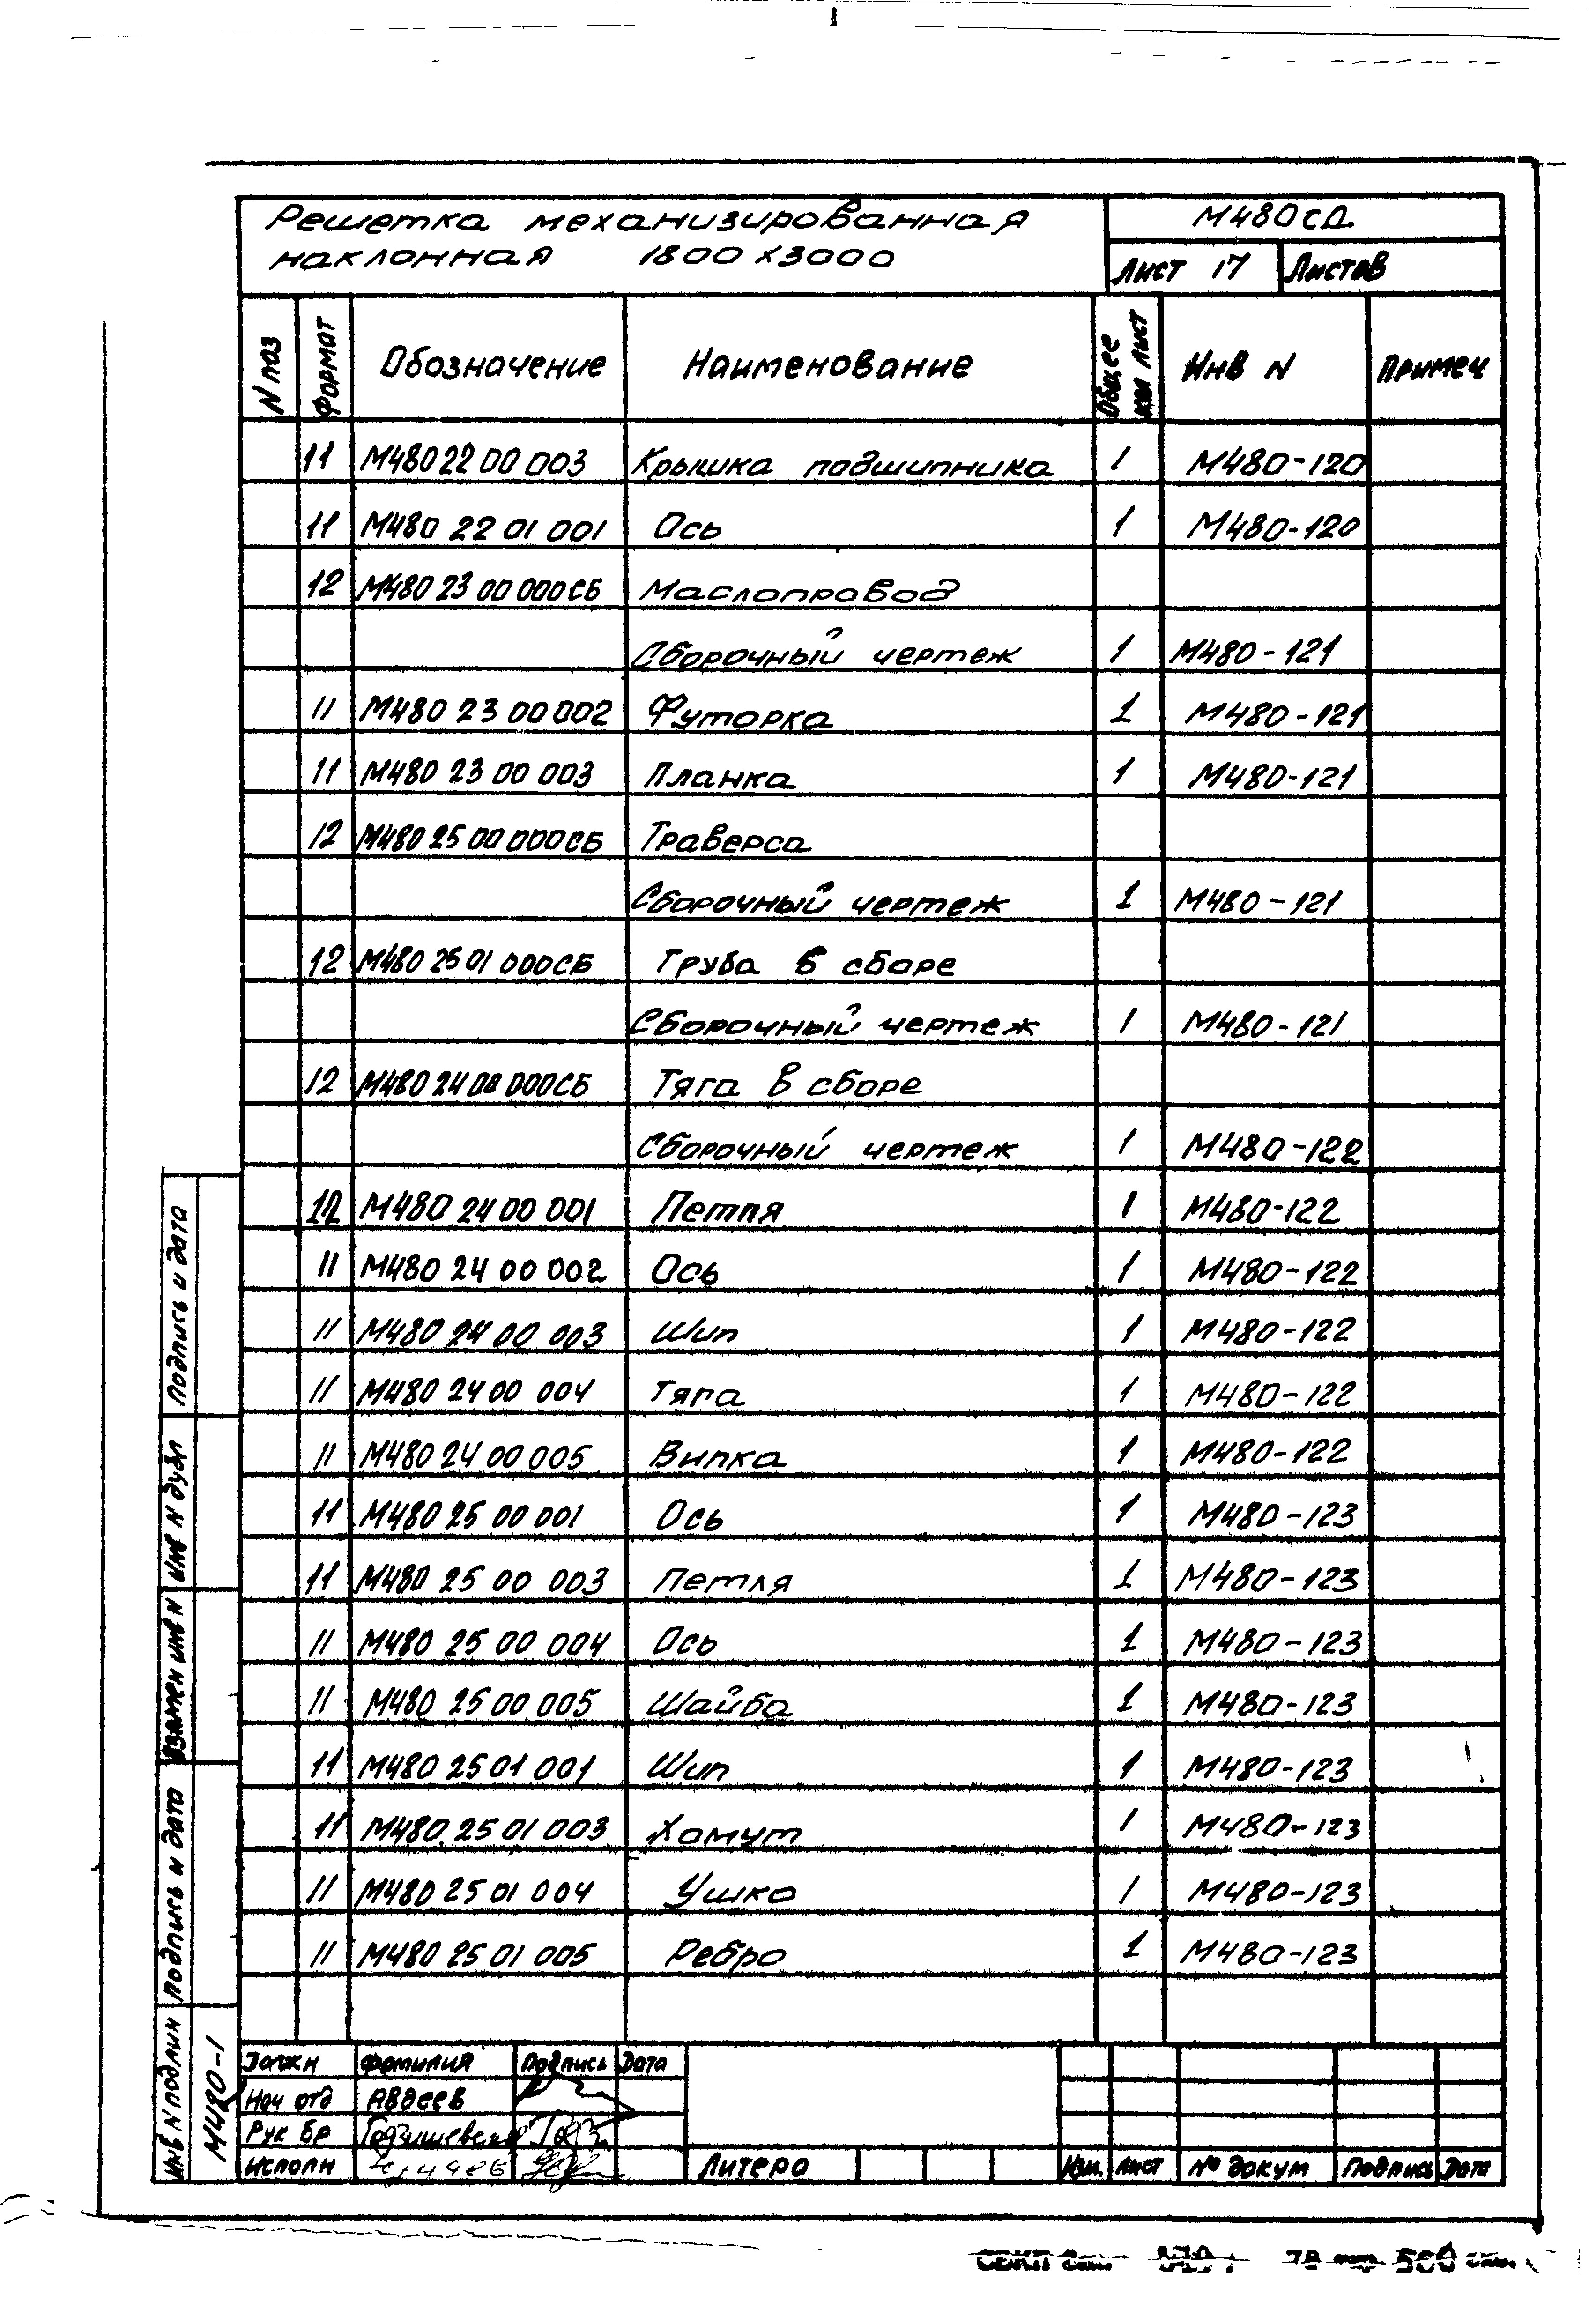 Решетка механизированная
наклонная 1800×3000
М480СД
Лист 17 Листов
N поз Формат Обозначение Наименование Общее кол лист Инв N Примеч
11 М480 22 00 003 Крышка подшипника 1 М480-120
11 М480 22 01 001 Ось 1 М480-120
12 М480 23 00 000СБ Маслопровод
Сборочный чертеж 1 М480-121
11 М480 23 00 002 Футорка 1 М480-121
11 М480 23 00 003 Планка 1 М480-121
12 М480 25 00 000СБ Траверса
Сборочный чертеж 1 М480-121
12 М480 25 01 000СБ Труба в сборе
Сборочный чертеж 1 М480-121
12 М480 24 00 000СБ Тяга в сборе
Сборочный чертеж 1 М480-122
12 М480 24 00 001 Петля 1 М480-122
11 М480 24 00 002 Ось 1 М480-122
11 М480 24 00 003 Шип 1 М480-122
11 М480 24 00 004 Тяга 1 М480-122
11 М480 24 00 005 Вилка 1 М480-122
11 М480 25 00 001 Ось 1 М480-123
11 М480 25 00 003 Петля 1 М480-123
11 М480 25 00 004 Ось 1 М480-123
11 М480 25 00 005 Шайба 1 М480-123
11 М480 25 01 001 Шип 1 М480-123
11 М480 25 01 003 Хомут 1 М480-123
11 М480 25 01 004 Ушко 1 М480-123
11 М480 25 01 005 Ребро 1 М480-123
Подпись и дата
Инв N дубл
Взамен инв N
Подпись и дата
Инв N подлин М480-1
Должн Фамилия Подпись Дата
Нач отд Авдеев
Рук бр
Исполн
Литера
Изм. Лист № докум Подпись Дата